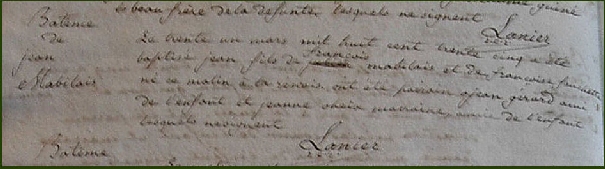 le beau frère de la defunte, lesquels ne signent
Lanier
Batême
de
jean
Mabilais
Le trente un mars mil huit cent trente cinq a été
baptisé jean fils de françois mabilais et de françoise
né ce matin à la ont été parrain jean gerard ami
de l'enfant et jeanne marraine, amie de l'enfant
lesquels ne signent
Lanier
Batême